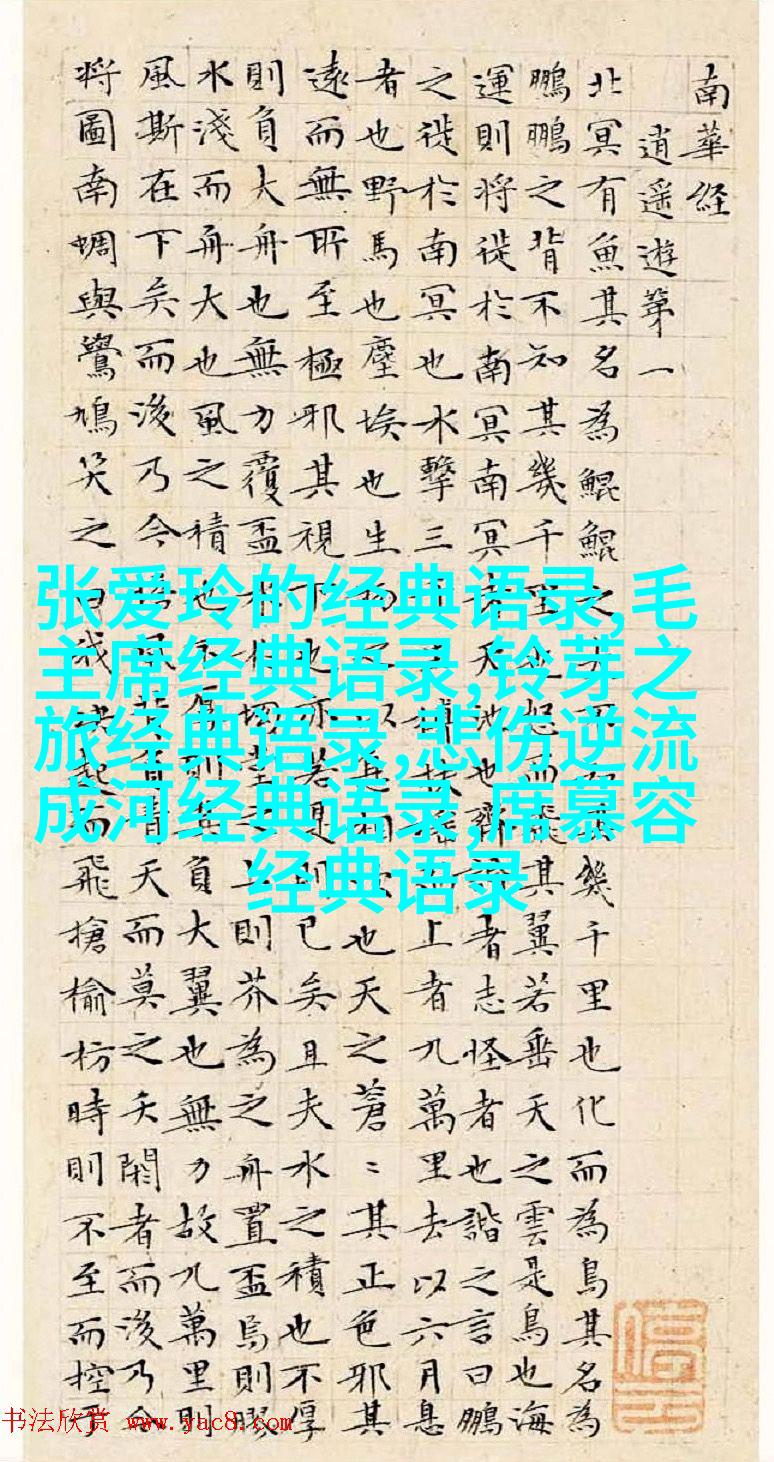 南華经
逍遥遊第一
北冥有魚其名為鯤鯤之幾千里也化而為鳥其名為
鵬鵬之背不知其幾千里也怒而飛其翼若垂天之雲是鳥也海
運則将徙於南冥南冥天池也齊者志怪者也諧之言曰鵬
之徙於南冥也水擊三上者九萬里去以六月息
者也野馬也塵埃也生物以息相也天之蒼〻其正色邪其
遠而無所至極邪其視下也亦若是則已矣且夫水之積也不厚
則負大舟也無力覆盃水坳堂上則芥為之舟置盃焉則膠
水淺而舟大也風之積也則其負大翼也無力故九萬里則
風斯在下矣而後乃今風背負青天而莫之夭閼者而後乃今
将圖南蜩與鷽鳩笑之曰我起而飛搶榆枋時則不至而控於
张爱玲的经典语录,毛
主席经典语录,铃芽之
旅经典语录,悲伤逆流
成河经典语录,席慕容
经典语录
书法欣赏 www.yac8.com